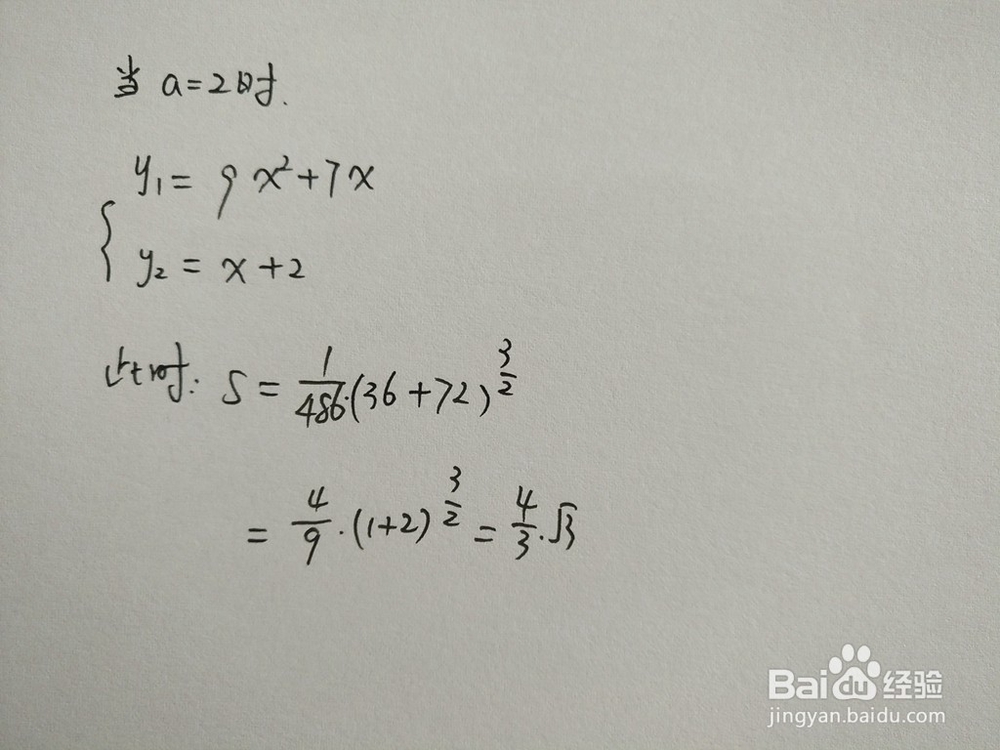 当 a=2时.
y₁ = 9x²+7x
y₂ = x+2
此时: S = 1/486·(36+72)^(3/2)
= 4/9·(1+2)^(3/2) = 4/3·√3
Baidu 经验
jingyan.baidu.com